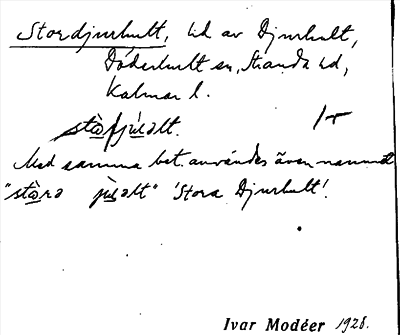 Stordjurhult, hd av Djurhult,
Döderhult sn, Stranda hd,
Kalmar l.
Med samma bet. användes även namnet
"stὼra jùƚalt" 'Stora Djurhult'.
Ivar Modéer 1928.